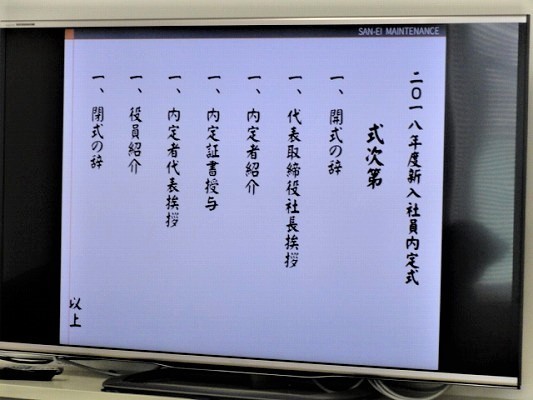 SAN-EI MAINTENANCE
二〇一八年度新入社員内定式
式次第
一、開式の辞
一、代表取締役社長挨拶
一、内定者紹介
一、内定証書授与
一、内定者代表挨拶
一、役員紹介
一、閉式の辞
以上